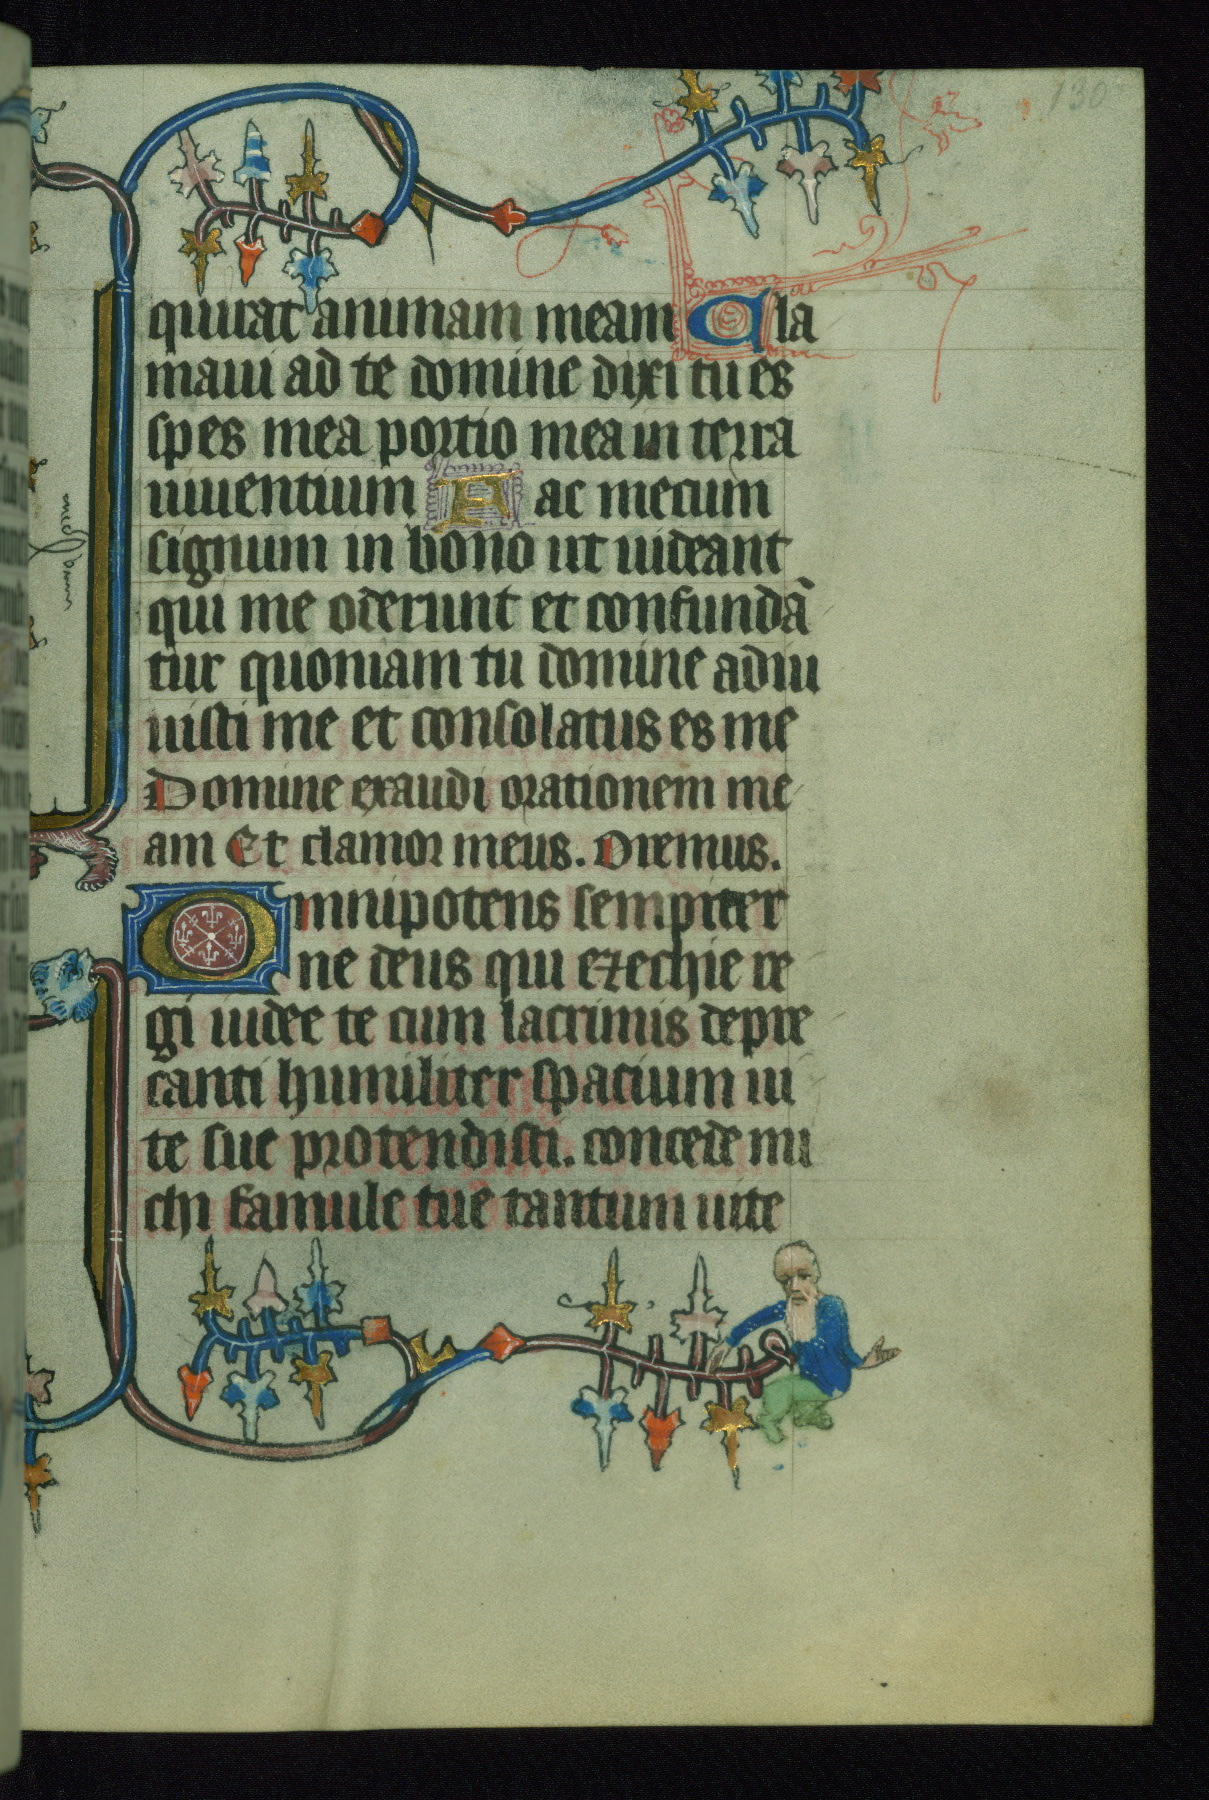 130
quirat animam meam Cla
maui ad te domine dixi tu es
spes mea portio mea in terra
uiuentium Fac mecum
signum in bono ut uideant
qui me oderunt et confundā
tur quoniam tu domine adiu
uisti me et consolatus es me
Domine exaudi orationem me
am Et clamor meus. Oremus.
Omnipotens sempiter
ne deus qui ezechie re
gi iudee te cum lacrimis depre
canti humiliter spacium ui
te sue protendisti. concede mi
chi famule tue tantum uite